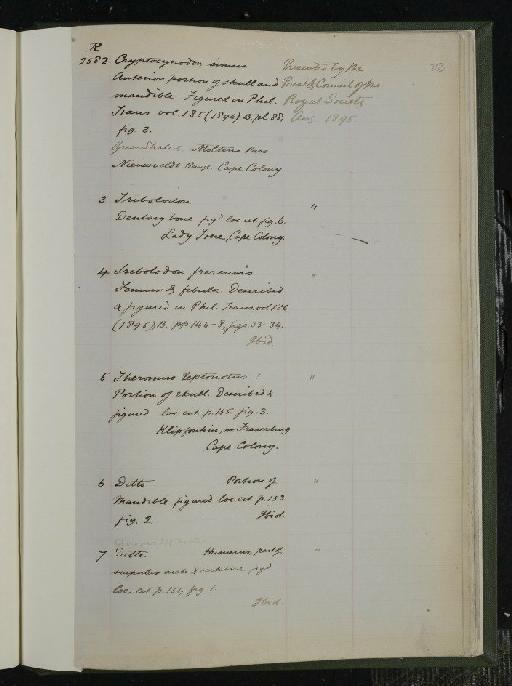 R
2582 Cryptocynodon simus Presented by the
Anterior portion of skull and President & Council of the
mandible. Figured in Phil. Royal Society
Trans vol. 185 (1894) B. pl 88, Aug 1895
fig. 2.
Molteno Pass
Nieuwveldt Range. Cape Colony
3 Tribolodon "
Dentary bone figd loc cit fig. 6.
Lady Frere, Cape Colony.
4 Tribolodon frerensis "
Femur & fibula. Described
& figured in Phil. Trans vol 186
(1895) B. pp 144-8, figs 33-34.
Ibid.
5 Theromus leptonotus "
Portion of skull. Described &
figured loc cit p. 145 fig. 3.
Klipfontein, nr Fraserburg
Cape Colony.
6 Ditto Portion of "
Mandible figured loc cit p. 153
fig. 2 Ibid.
7 Ditto Humerus, part of "
loc. cit p. 151, fig 1.
Ibid.